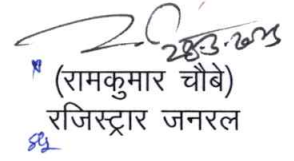 28.3.2025
(रामकुमार चौबे)
रजिस्ट्रार जनरल